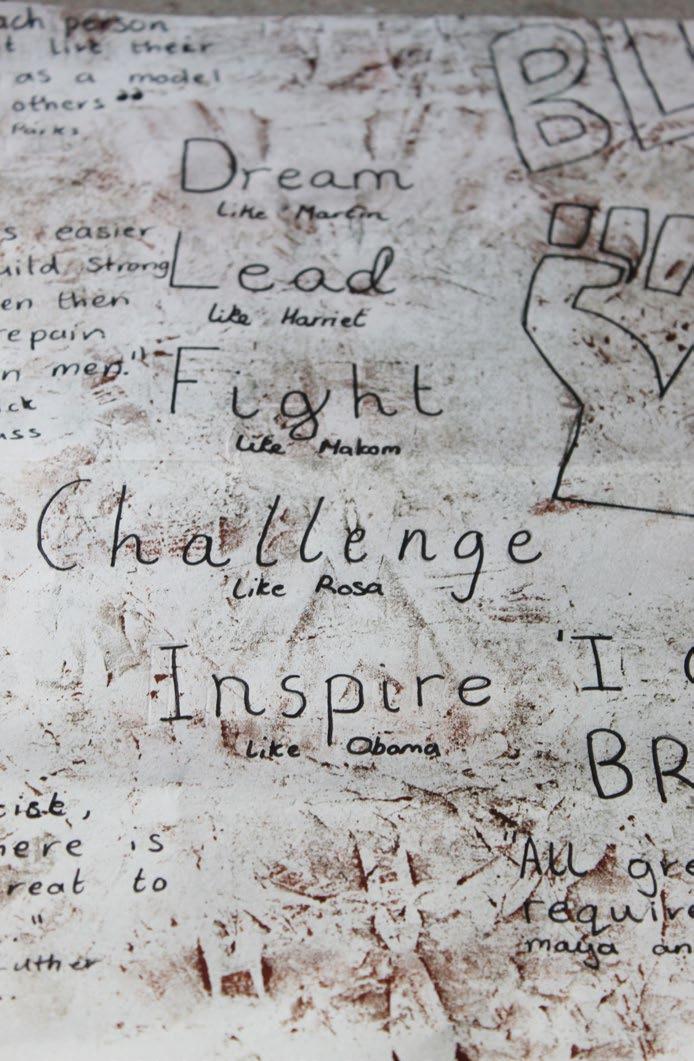 ach person
t live their
as a model
others"
Parks
BL
Dream
like Martin
s easier
uild strong
en then
repain
n men."
ck
ass
Lead
like Harriet
Fight
like Malcom
Challenge
like Rosa
Inspire
like Obama
'I
BR
cist,
here is
reat to
"
uther
"All gre
require
maya an